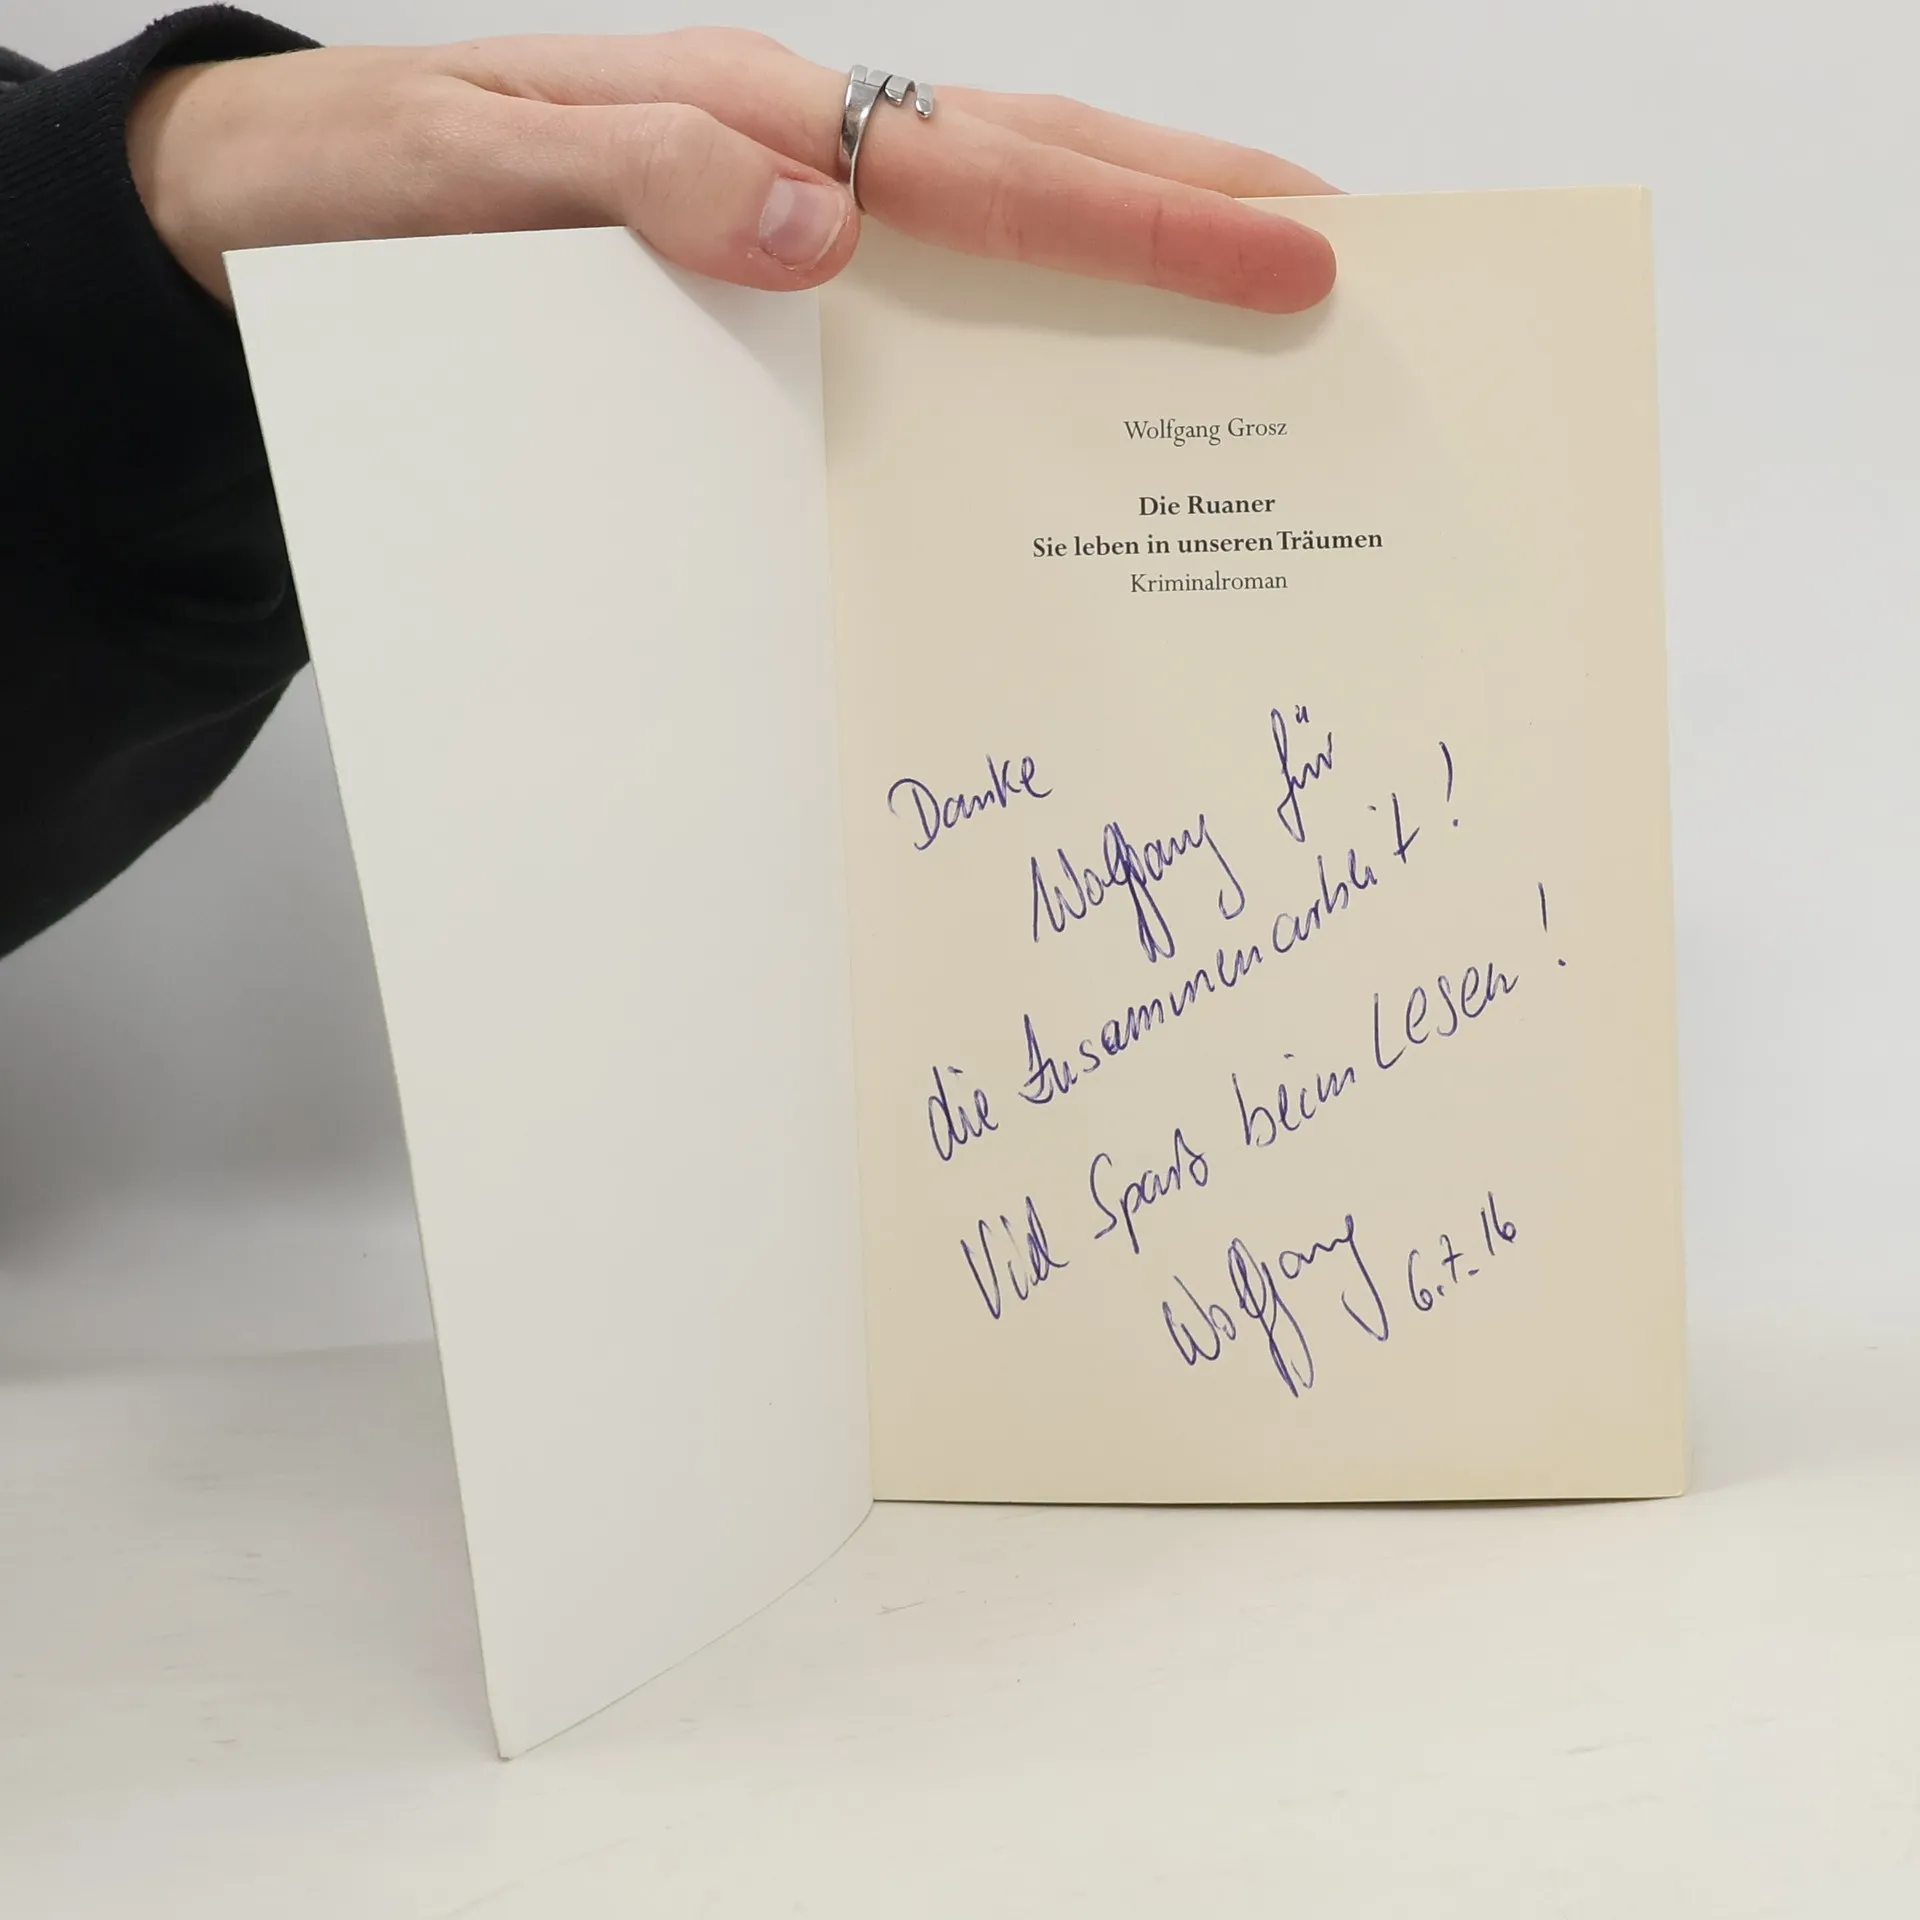 Wolfgang Grosz
Die Ruaner
Sie leben in unseren Träumen
Kriminalroman
Danke
Wolfgang für
die Zusammenarbeit!
Viel Spaß beim Lesen!
Wolfgang 6.7.16